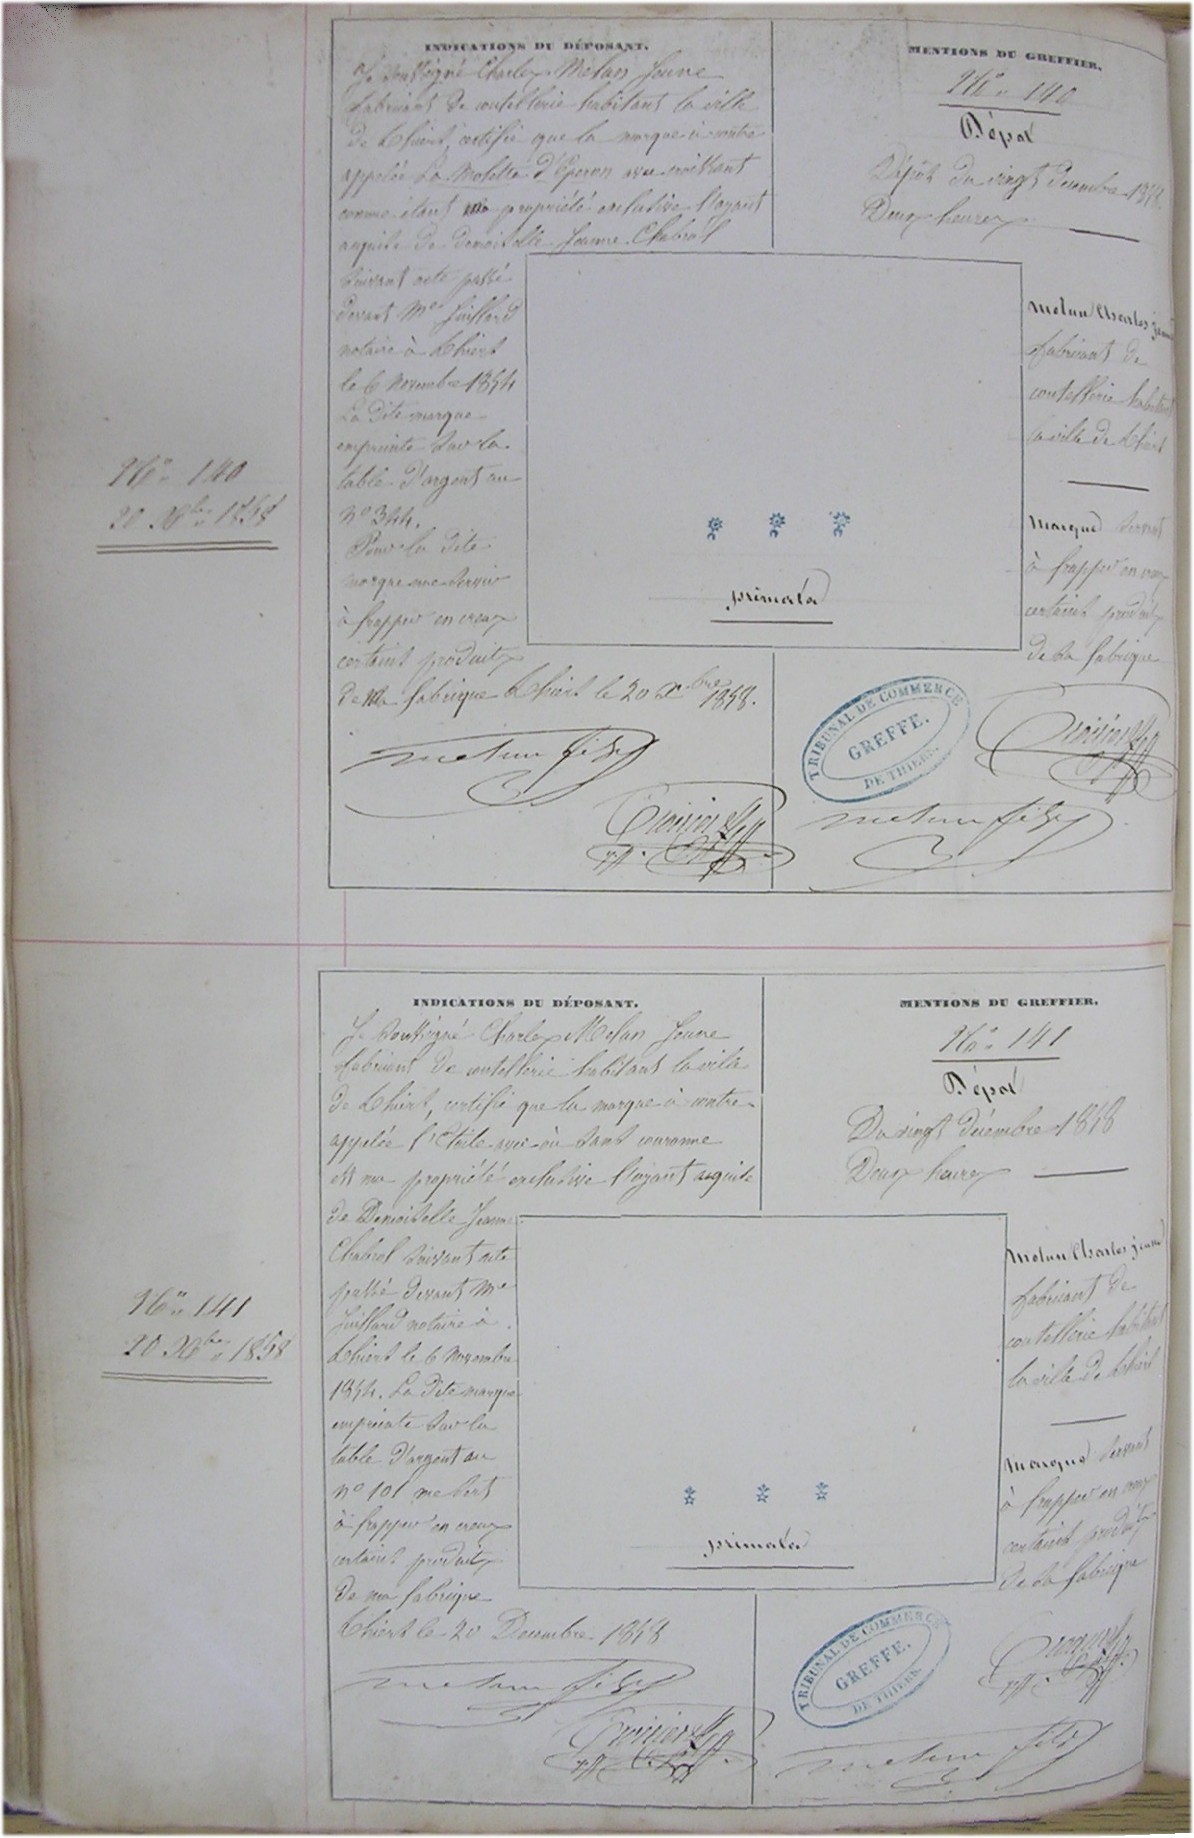 INDICATIONS DU DÉPOSANT.
Je soussigné Charles Melun Jeune
fabricant de coutellerie habitant la ville
de Thiers, certifie que la marque ci contre
appelée La Molette d'Eperon avec croissant
comme étant ma propriété exclusive l'ayant
acquise de Demoiselle Jeanne Chabrol
suivant acte passé
devant Me
notaire à Thiers
le 6 novembre 1854
La dite marque
empreinte sur la
table d'argent au
no 344.
Pour la dite
marque me servir
à frapper en creux
certains produits
de ma fabrique Thiers le 20 Xbre 1858.
melun
MENTIONS DU GREFFIER.
No 140
Dépot
Dépôt du vingt décembre 1858.
Deux heures
Melun Charles jeune
fabricant de
coutellerie habitant
la ville de Thiers
Marque servant
à frapper en creux
certains produits
de sa fabrique
primata
TRIBUNAL DE COMMERCE
GREFFE.
DE THIERS.
melun
No 140
20 Xbre 1858
INDICATIONS DU DÉPOSANT.
Je soussigné Charles Melun Jeune
fabricant de coutellerie habitant la ville
de Thiers, certifie que la marque ci contre
appelée l'Etoile avec ou sans couronne
est ma propriété exclusive l'ayant acquise
de Demoiselle Jeanne
Chabrol suivant acte
passé devant Me
notaire à
Thiers le 6 Novembre
1854. La dite marque
empreinte sur la
table d'argent au
no 101 me sert
à frapper en creux
certains produits
de ma fabrique
Thiers le 20 Decembre 1858
melun
MENTIONS DU GREFFIER.
No 141
Dépot
Du vingt décembre 1858
Deux heures
Melun Charles jeune
fabricant de
coutellerie habitant
la ville de Thiers
Marque servant
à frapper en creux
certains produits
de sa fabrique
primata
TRIBUNAL DE COMMERCE
GREFFE.
DE THIERS.
melun
No 141
20 Xbre 1858